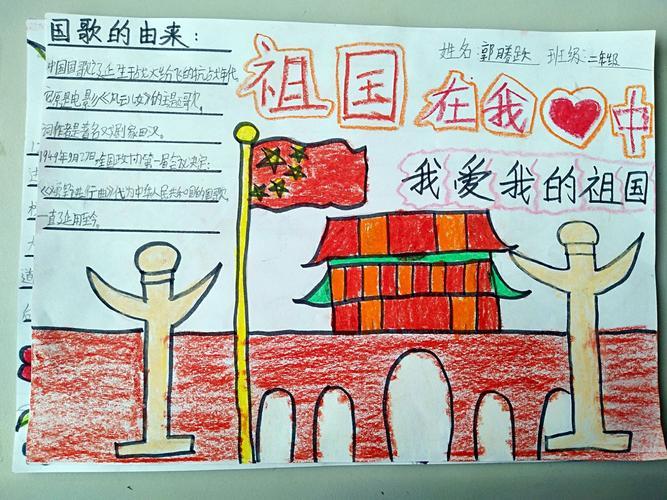 国歌的由来:
中国国歌它诞生于战火纷飞的抗战年代,
它原是电影《风云儿女》的主题歌。
词作者是著名戏剧家田汉。
1949年9月27日,全国政协第一届会议决定:
《义勇军进行曲》代为中华人民共和国的国歌,
一直沿用至今。
姓名:郭腾跃 班级:二年级
祖国
在我中
我爱我的祖国